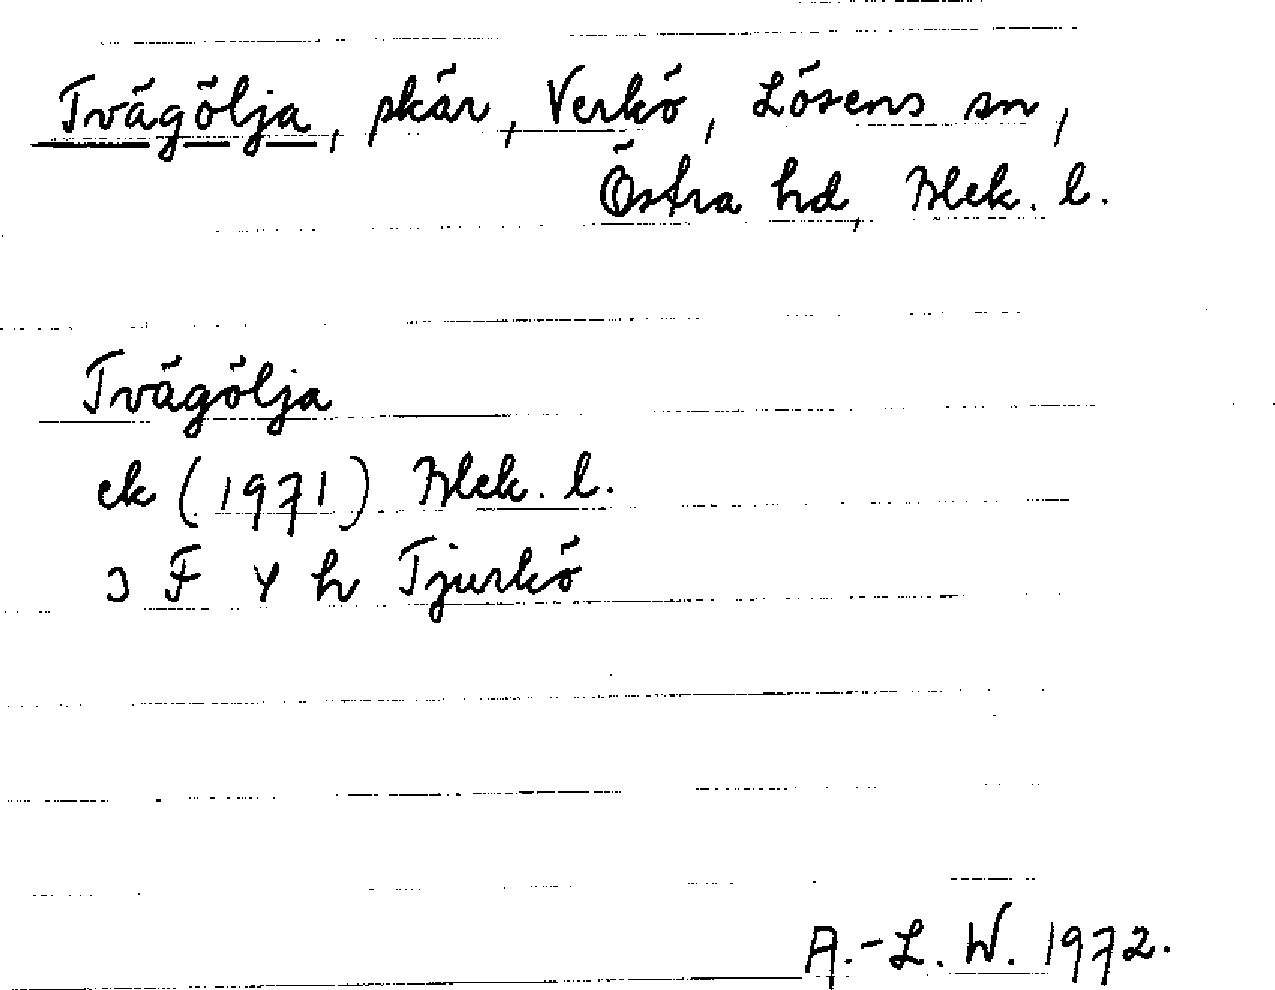 Tvägölja, skär, Verkö, Lösens sn,
Östra hd, Blek. l.
Tvägölja
ek (1971) Blek. l.
3 F Y h Tjurkö
A.-L. W. 1972.